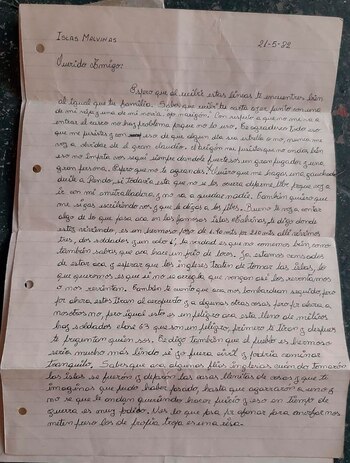 ISLAS MALVINAS 21-5-82
Querido Amigo:
Espero que al recibir estas líneas te encuentres bien
al igual que tu familia. Sabes que recibí tu carta ayer junto con una
de mi vieja y una de mi novia. Con respecto a que no me van a
entrar el carro no hay problema porque no lo uso. Te agradezco todo eso
que me pusistes y con eso de que algún día sea estrella o no, nunca me
voy a olvidar de el gran claudio. el telegrama me pusistes que no andas bien
eso no importa vos seguí siempre dandole fuerte sos un gran jugador y una
gran persona. Espero que no te agrandes! Quiero que me hagas una gauchada
decile a Pando, si todavía está que no se los queme dispense porque voy a
ir con mi ametralladora y no va a quedar nadie. También quiero que
me sigas escribiendo vos y que le digas a los pibes. Bueno te voy a contar
algo de lo que pasa acá en las famosas islas te digo donde
estoy viviendo, es un hermoso pozo de 1,70 mts por 2,10 mts allí vivimos
tres, dos soldados y un cabo 1º, la verdad es que no comemos bien, como
también sabrás que acá hace un frío de locos. Ya estamos cansados
de estar acá y esperar que los ingleses traten de tomar las islas, lo
que queremos es que si no se arregla que vengan así los reventamos
o nos revientan. También te cuento que acá nos bombardean seguido pero
por ahora estos tiran al aeropuerto y a algunas otras cosas, pero por ahora a
nosotros no, pero igual esto es un peligro acá está lleno de milicos
hay soldados clase 63 que son un peligro, primero te tiran y después
te preguntan quién sos. Te digo también que el pueblo es hermoso
sería mucho más lindo si yo fuera civil y podría caminar
tranquilo. Sabés que acá algunas flias inglesas cuando tomaron
las islas se fueron y dejaron las casas llenitas de cosas y que te
imaginas que pudo haber pasado, hasta que agarraron a uno y
no se que le andan queriendo hacer juicio y eso en tiempo de
guerra es muy jodido. Ves lo que pasa por afanar para once
meten pero los de propia tropa es una risa.